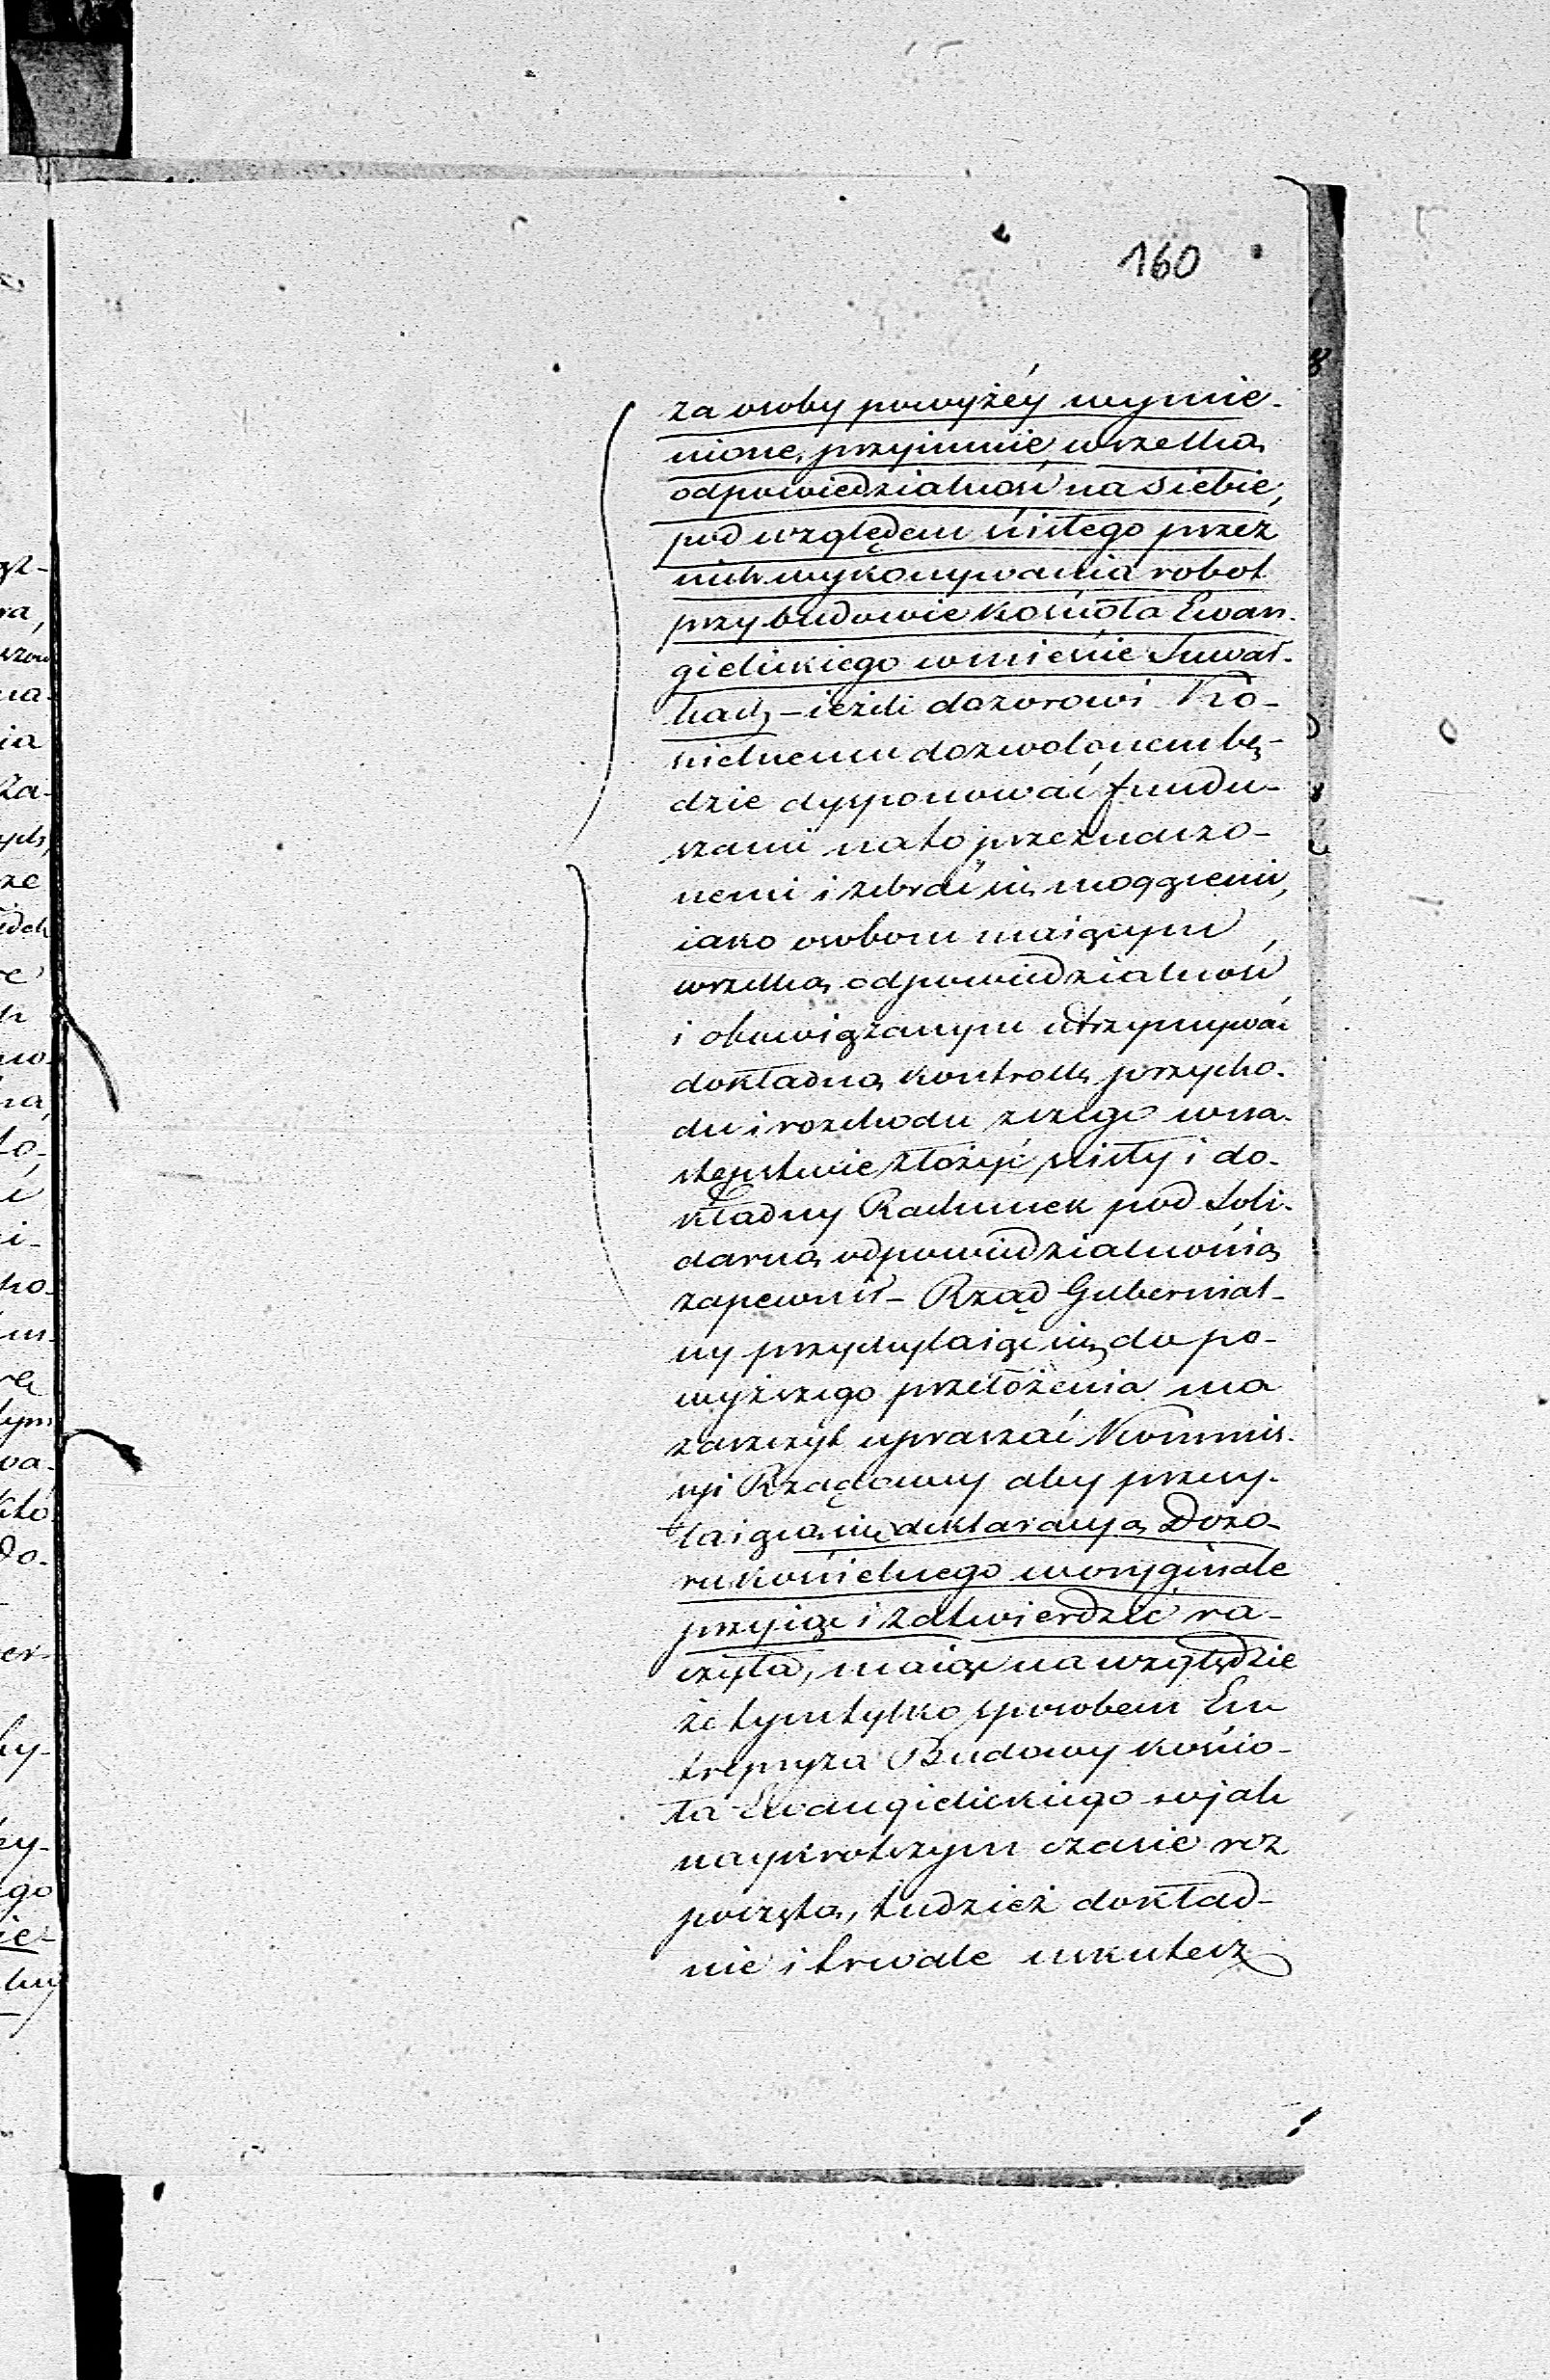 160
za osoby powyżéy wymie-
nione, przyimuie wszelką
odpowiedzialność na siebie,
pod względem ścisłego przez
nich wykonywania robot
przy budowie kościoła Ewan-
gielickiego w mieście Suwał-
kach, – ieżeli dozorowi Ko-
ścielnemu dozwolonem bę-
dzie dysponować fundu-
szami na to przeznaczo-
nemi i zebrać się mogącemi,
iako osobom maiącym
wszelką odpowiedzialność
i obowiązanym utrzymywać
dokładną kontrollę przycho-
du i rozchodu z czego w na-
stępstwie złożyć ścisły i do-
kładny Rachunek pod Soli-
darną odpowiedzialnością
zapewnił – Rząd Gubernial-
ny przychylaiąc się do po-
wyższego przełożenia ma
zaszczyt upraszać Kommis-
syi Rządowy aby przesy-
łaiącą się deklaracyą Dozo-
ru kościelnego w oryginale
przyiąć i zatwierdzić ra-
czyła, maiąc na względzie
że tym tylko sposobem En
trepryza Budowy kościo-
ła Ewangielickiego w jak
naykrotszym czasie roz
poczęta, tudzież dokład-
nie i trwale uskutecz